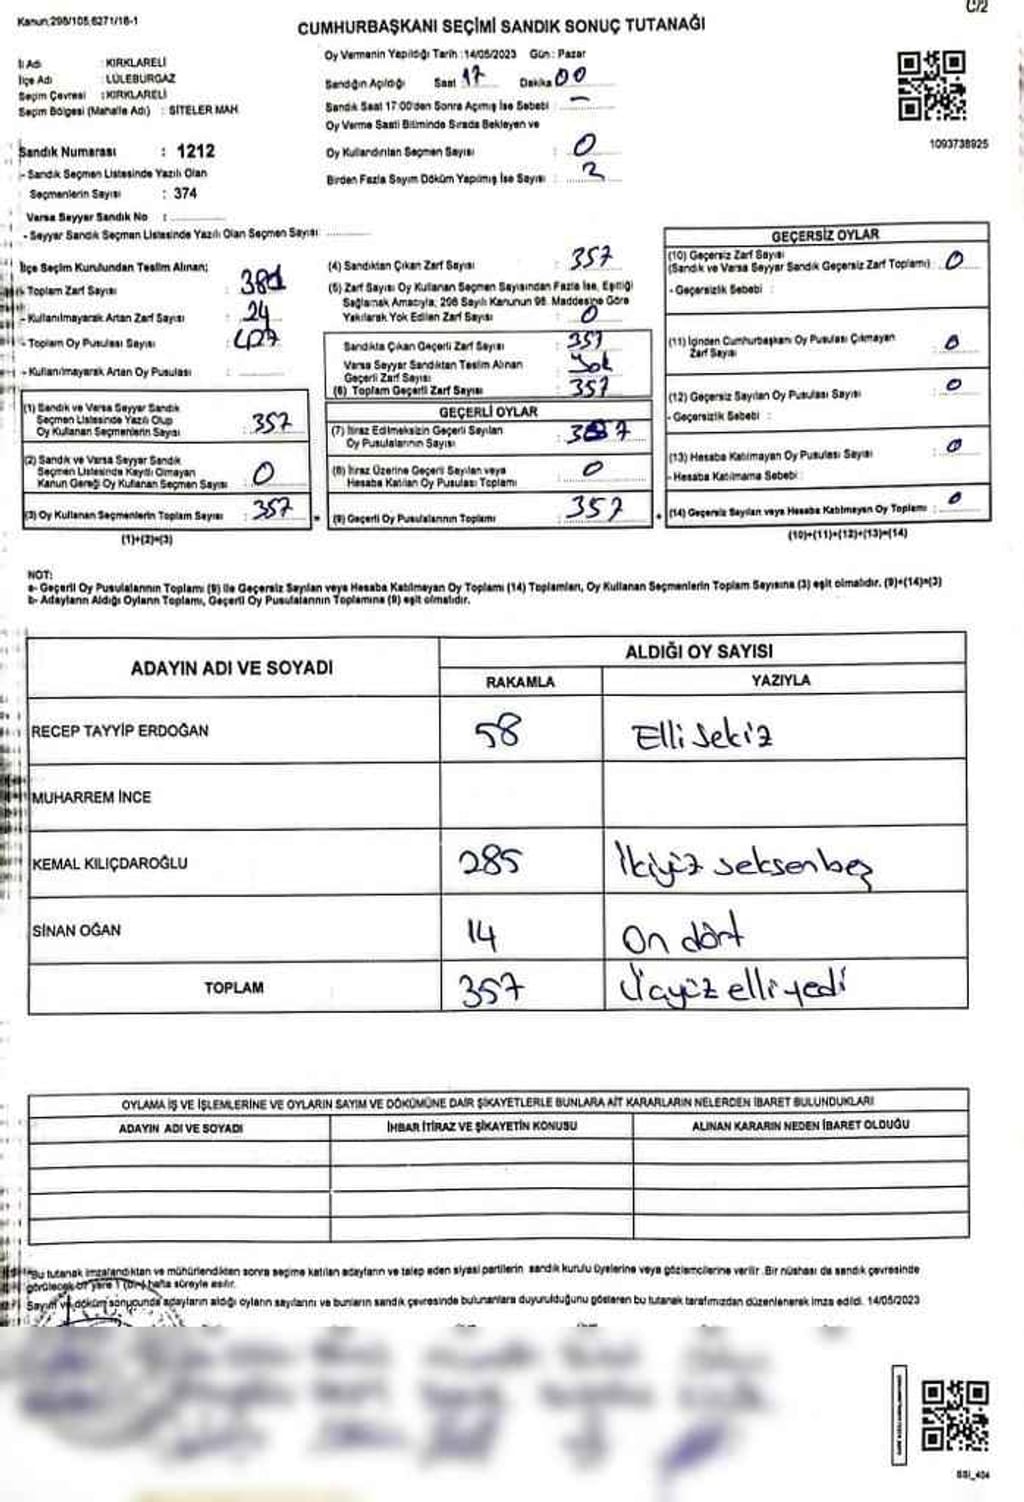 Kanun;298/105,6271/18-1
C/2
CUMHURBAŞKANI SEÇİMİ SANDIK SONUÇ TUTANAĞI
İl Adı : KIRKLARELİ
İlçe Adı : LÜLEBURGAZ
Seçim Çevresi : KIRKLARELİ
Seçim Bölgesi (Mahalle Adı) : SİTELER MAH.
Sandık Numarası : 1212
- Sandık Seçmen Listesinde Yazılı Olan
Seçmenlerin Sayısı : 374
Varsa Seyyar Sandık No :
- Seyyar Sandık Seçmen Listesinde Yazılı Olan Seçmen Sayısı
Oy Vermenin Yapıldığı Tarih :14/05/2023 Gün : Pazar
Sandığın Açıldığı Saat 17 Dakika 00
Sandık Saat 17:00'den Sonra Açmış İse Sebebi : -
Oy Verme Saati Bitiminde Sırada Bekleyen ve
Oy Kullandırılan Seçmen Sayısı : 0
Birden Fazla Sayım Döküm Yapılmış İse Sayısı : 2
1093738925
İlçe Seçim Kurulundan Teslim Alınan;
- Toplam Zarf Sayısı : 381
- Kullanılmayarak Artan Zarf Sayısı : 24
- Toplam Oy Pusulası Sayısı :
- Kullanılmayarak Artan Oy Pusulası :
(1) Sandık ve Varsa Seyyar Sandık
Seçmen Listesinde Yazılı Olup
Oy Kullanan Seçmenlerin Sayısı : 357
(2) Sandık ve Varsa Seyyar Sandık
Seçmen Listesinde Kayıtlı Olmayan
Kanun Gereği Oy Kullanan Seçmen Sayısı : 0
(3) Oy Kullanan Seçmenlerin Toplam Sayısı : 357
(1)+(2)=(3)
(4) Sandıktan Çıkan Zarf Sayısı : 357
(5) Zarf Sayısı Oy Kullanan Seçmen Sayısından Fazla İse, Eşitliği
Sağlamak Amacıyla, 298 Sayılı Kanunun 98. Maddesine Göre
Yakılarak Yok Edilen Zarf Sayısı : 0
Sandıkta Çıkan Geçerli Zarf Sayısı : 357
Varsa Seyyar Sandıktan Teslim Alınan
Geçerli Zarf Sayısı : Yok
(6) Toplam Geçerli Zarf Sayısı : 357
GEÇERLİ OYLAR
(7) İtiraz Edilmeksizin Geçerli Sayılan
Oy Pusulalarının Sayısı : 357
(8) İtiraz Üzerine Geçerli Sayılan veya
Hesaba Katılan Oy Pusulası Toplamı : 0
(9) Geçerli Oy Pusulalarının Toplamı : 357
GEÇERSİZ OYLAR
(10) Geçersiz Zarf Sayısı
(Sandık ve Varsa Seyyar Sandık Geçersiz Zarf Toplamı) : 0
- Geçersizlik Sebebi :
(11) İçinden Cumhurbaşkanı Oy Pusulası Çıkmayan
Zarf Sayısı : 0
(12) Geçersiz Sayılan Oy Pusulası Sayısı : 0
- Geçersizlik Sebebi :
(13) Hesaba Katılmayan Oy Pusulası Sayısı : 0
- Hesaba Katılmama Sebebi :
(14) Geçersiz Sayılan veya Hesaba Katılmayan Oy Toplamı : 0
(10)+(11)+(12)+(13)=(14)
NOT:
a- Geçerli Oy Pusulalarının Toplamı (9) ile Geçersiz Sayılan veya Hesaba Katılmayan Oy Toplamı (14) Toplamları, Oy Kullanan Seçmenlerin Toplam Sayısına (3) eşit olmalıdır. (9)+(14)=(3)
b- Adayların Aldığı Oyların Toplamı, Geçerli Oy Pusulalarının Toplamına (9) eşit olmalıdır.
ADAYIN ADI VE SOYADI ALDIĞI OY SAYISI
RAKAMLA YAZIYLA
RECEP TAYYİP ERDOĞAN 58 Elli sekiz
MUHARREM İNCE
KEMAL KILIÇDAROĞLU 285 İkiyüz seksen beş
SİNAN OĞAN 14 On dört
TOPLAM 357 Üçyüz elli yedi
OYLAMA İŞ VE İŞLEMLERİNE VE OYLARIN SAYIM VE DÖKÜMÜNE DAİR ŞİKAYETLERLE BUNLARA AİT KARARLARIN NELERDEN İBARET BULUNDUKLARI
ADAYIN ADI VE SOYADI İHBAR İTİRAZ VE ŞİKAYETİN KONUSU ALINAN KARARIN NEDEN İBARET OLDUĞU
Bu tutanak imzalandıktan ve mühürlendikten sonra seçime katılan adayların ve talep eden siyasi partilerin sandık kurulu üyelerine veya gözlemcilerine verilir. Bir nüshası da sandık çevresinde
görülecek bir yere 1 (bir) hafta süreyle asılır.
Sayım ve döküm sonucunda adayların aldığı oyların sayılarını ve bunların sandık çevresinde bulunanlara duyurulduğunu gösteren bu tutanak tarafımızdan düzenlenerek imza edildi. 14/05/2023
SSİ_404